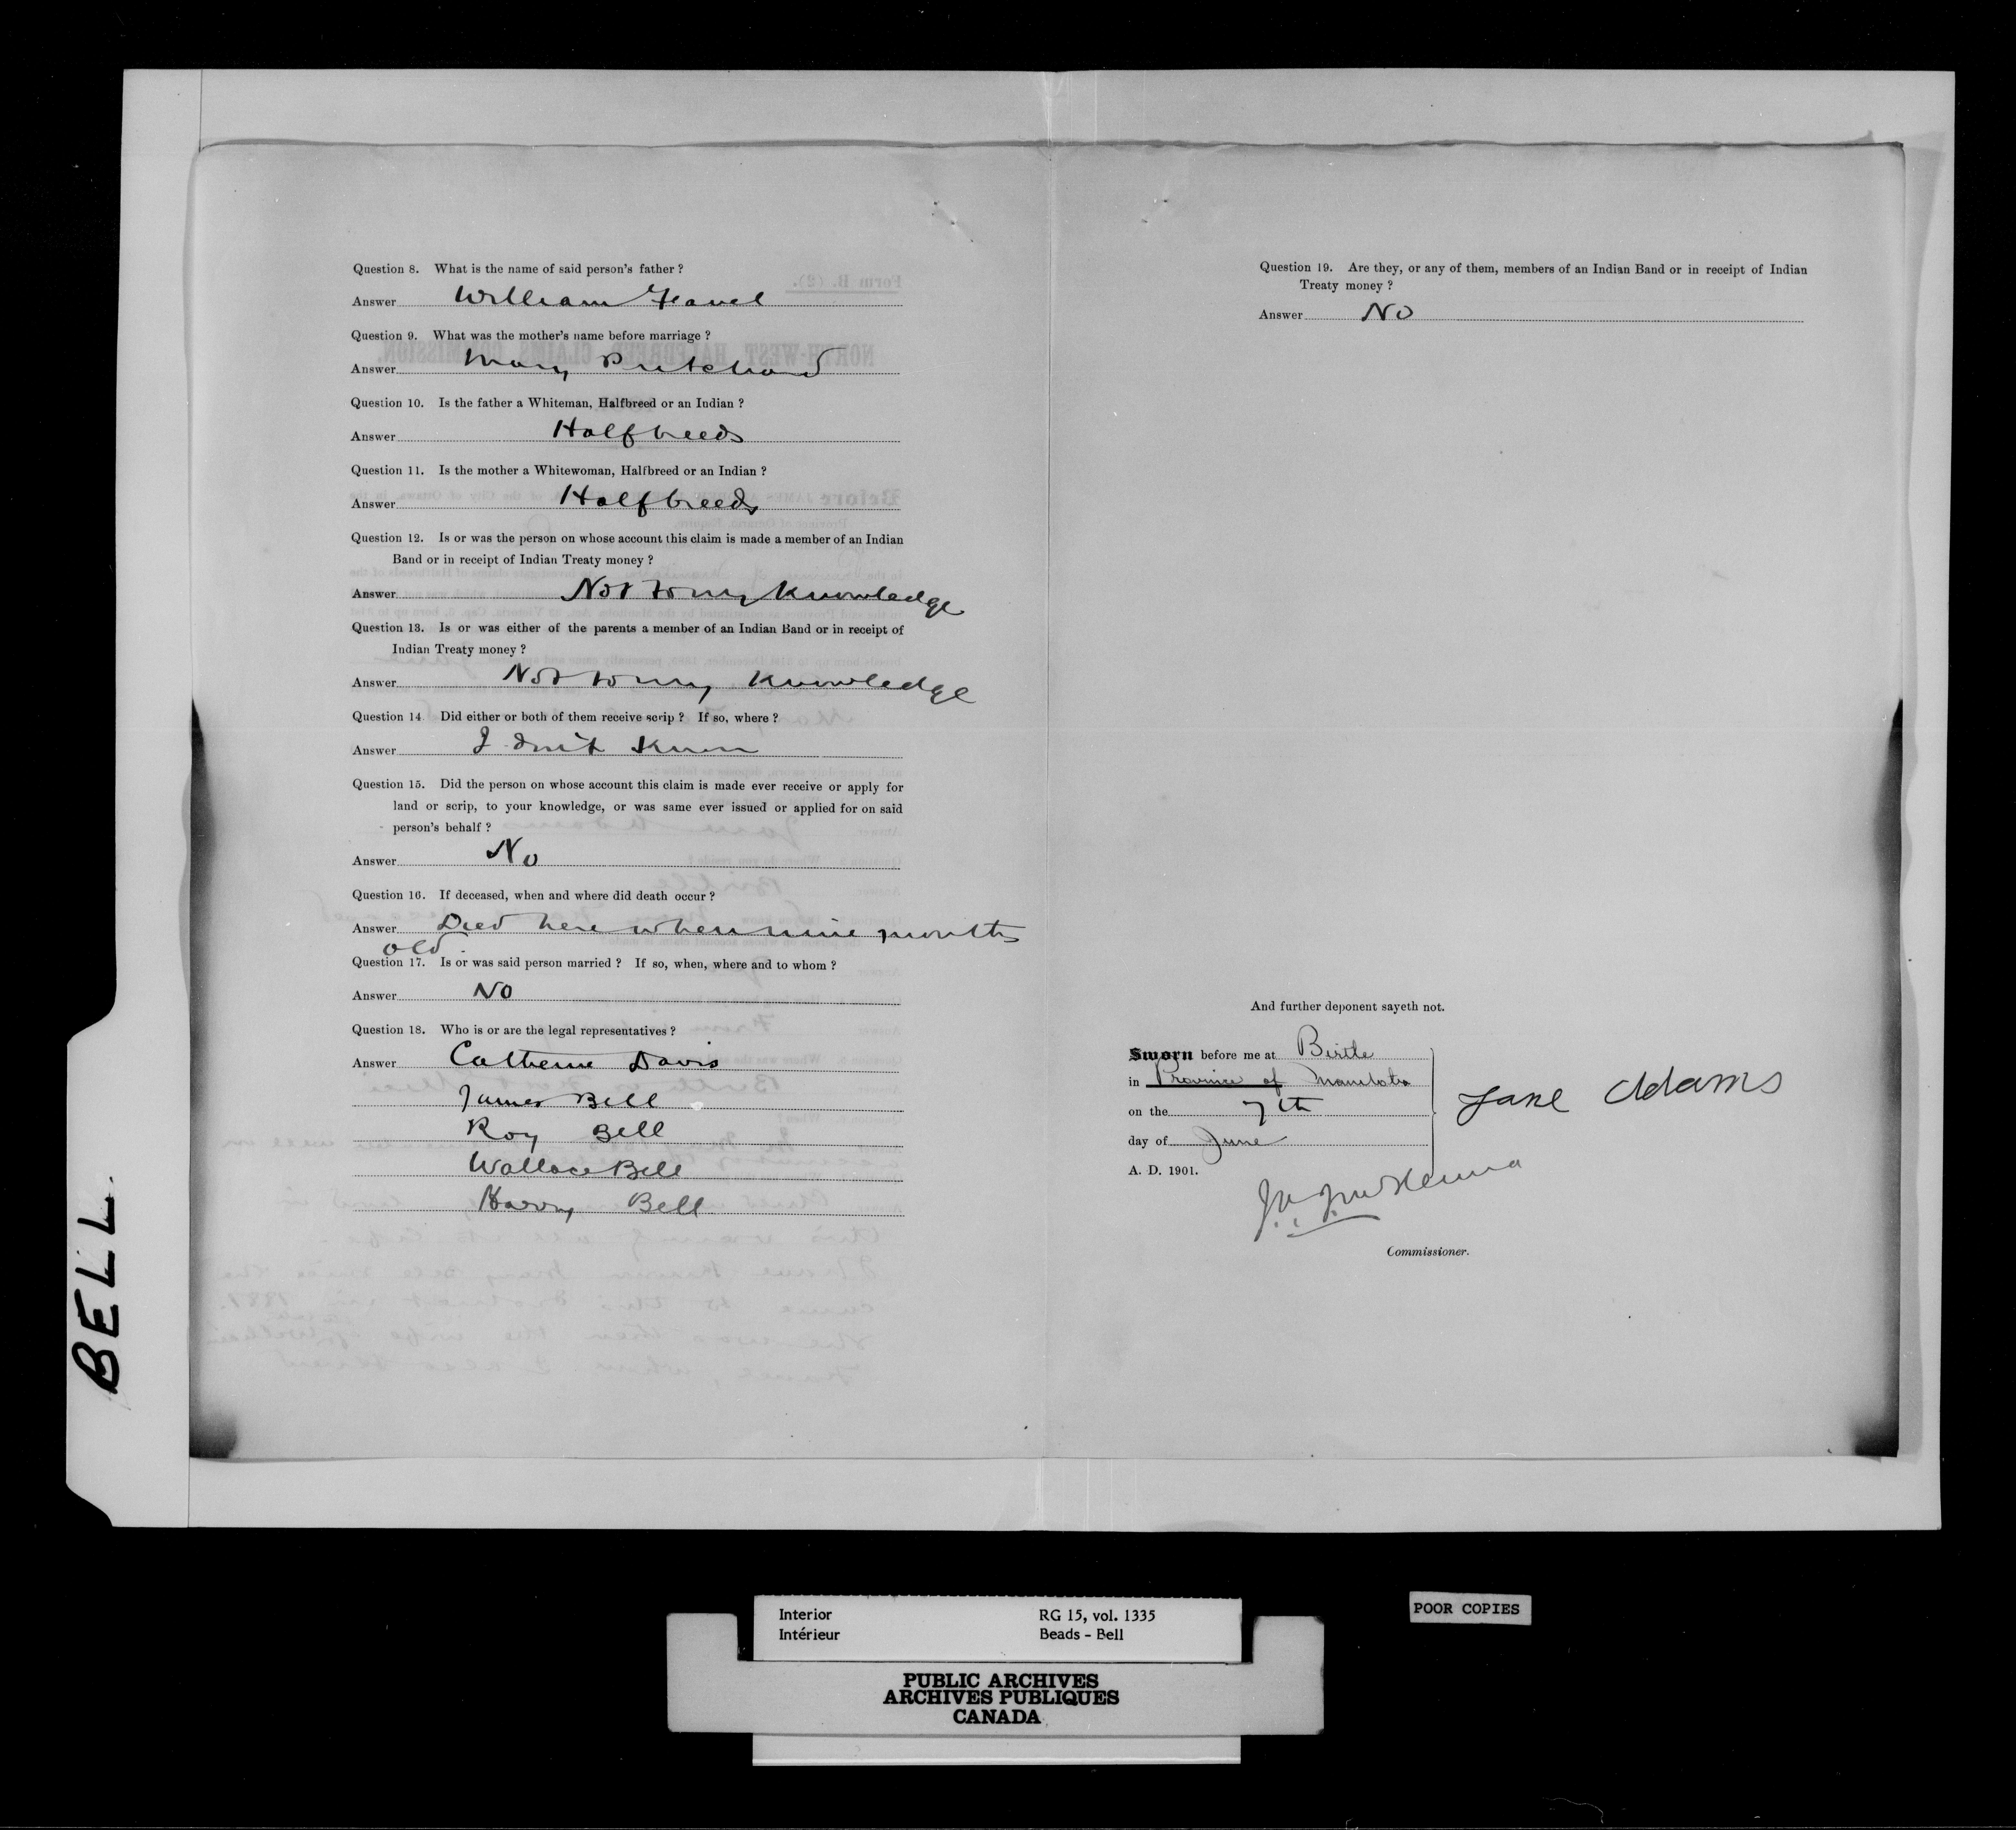 Question 8. What is the name of said person's father ?
Answer William Flavel
Question 9. What was the mother's name before marriage ?
Answer Mary Pritchard
Question 10. Is the father a Whiteman, Halfbreed or an Indian ?
Answer Halfbreeds
Question 11. Is the mother a Whitewoman, Halfbreed or an Indian ?
Answer Halfbreeds
Question 12. Is or was the person on whose account this claim is made a member of an Indian
Band or in receipt of Indian Treaty money ?
Answer Not to my knowledge
Question 13. Is or was either of the parents a member of an Indian Band or in receipt of
Indian Treaty money ?
Answer Not to my knowledge
Question 14 Did either or both of them receive scrip ? If so, where ?
Answer I don't know
Question 15. Did the person on whose account this claim is made ever receive or apply for
land or scrip, to your knowledge, or was same ever issued or applied for on said
person's behalf ?
Answer No
Question 16. If deceased, when and where did death occur ?
Answer Died here when nine months
old.
Question 17. Is or was said person married ? If so, when, where and to whom ?
Answer No
Question 18. Who is or are the legal representatives ?
Answer Catherine Davis
James Bell
Roy Bell
Wallace Bell
Harry Bell
Question 19. Are they, or any of them, members of an Indian Band or in receipt of Indian
Treaty money ?
Answer No
And further deponent sayeth not.
Sworn before me at Birtle
in Province of Manitoba
on the 7th
day of June
A. D. 1901.
Jane Adams
Commissioner.
BELL.
Interior RG 15, vol. 1335
Intérieur Beads - Bell
POOR COPIES
PUBLIC ARCHIVES
ARCHIVES PUBLIQUES
CANADA